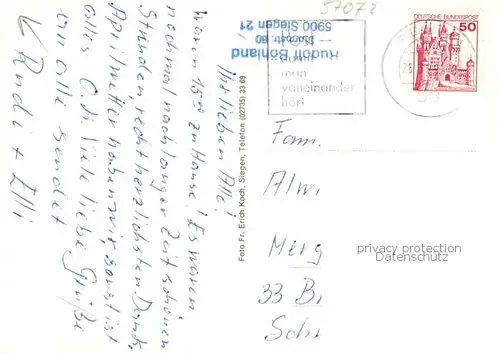 57072
Rudolf Bohland
Stormstr. 80
5900 Siegen 21
damit
man
voneinander
hört
DEUTSCHE BUNDESPOST
50
Ihr lieben Alle!
Waren 15⁰⁰ zu Hause. Es waren
nochmal nach langer Zeit schöne
Stunden, recht herzlichsten Dank.
Aprilwetter haben wir sonst ist
alles O.K. Viele liebe Grüße
von alle sendet
Rudi + Elli
Foto Fr. Erich Koch, Siegen, Telefon (02735) 33 69
Fam.
Alw
Merg
33 B
Sch
privacy protection
Datenschutz